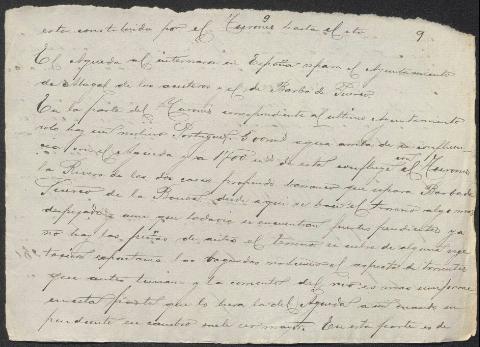 9
esta constituida por el Turones hasta el sto. 9
El Agueda al internarse en España separa el Ayuntamiento
de de los aceiteros el de Barba de Puerco
En la parte del Turones correspondiente al ultimo Ayuntamiento
solo hay un molino Portugues 600 agua arriba de su confluen
cia con el Agueda y a 1700 de esta confluye con el Turones
la Rivera de los dos casas profundo barranco que separa Barba de
Puerco de la Bouza, desde aqui se hace el terreno algo mas
despejado y aun que todavia se encuentran fuertes pendientes ya
no hay las peñas de antes el terreno se cubre de alguna vege
tacion espontanea las no tienen el aspecto de torrentes
que antes tenian y la corriente del rio es mas uniforme
en esta parte que lo lleva la del Agueda aun cuando su
pendiente en cambio suele ser mayor. En esta parte es de